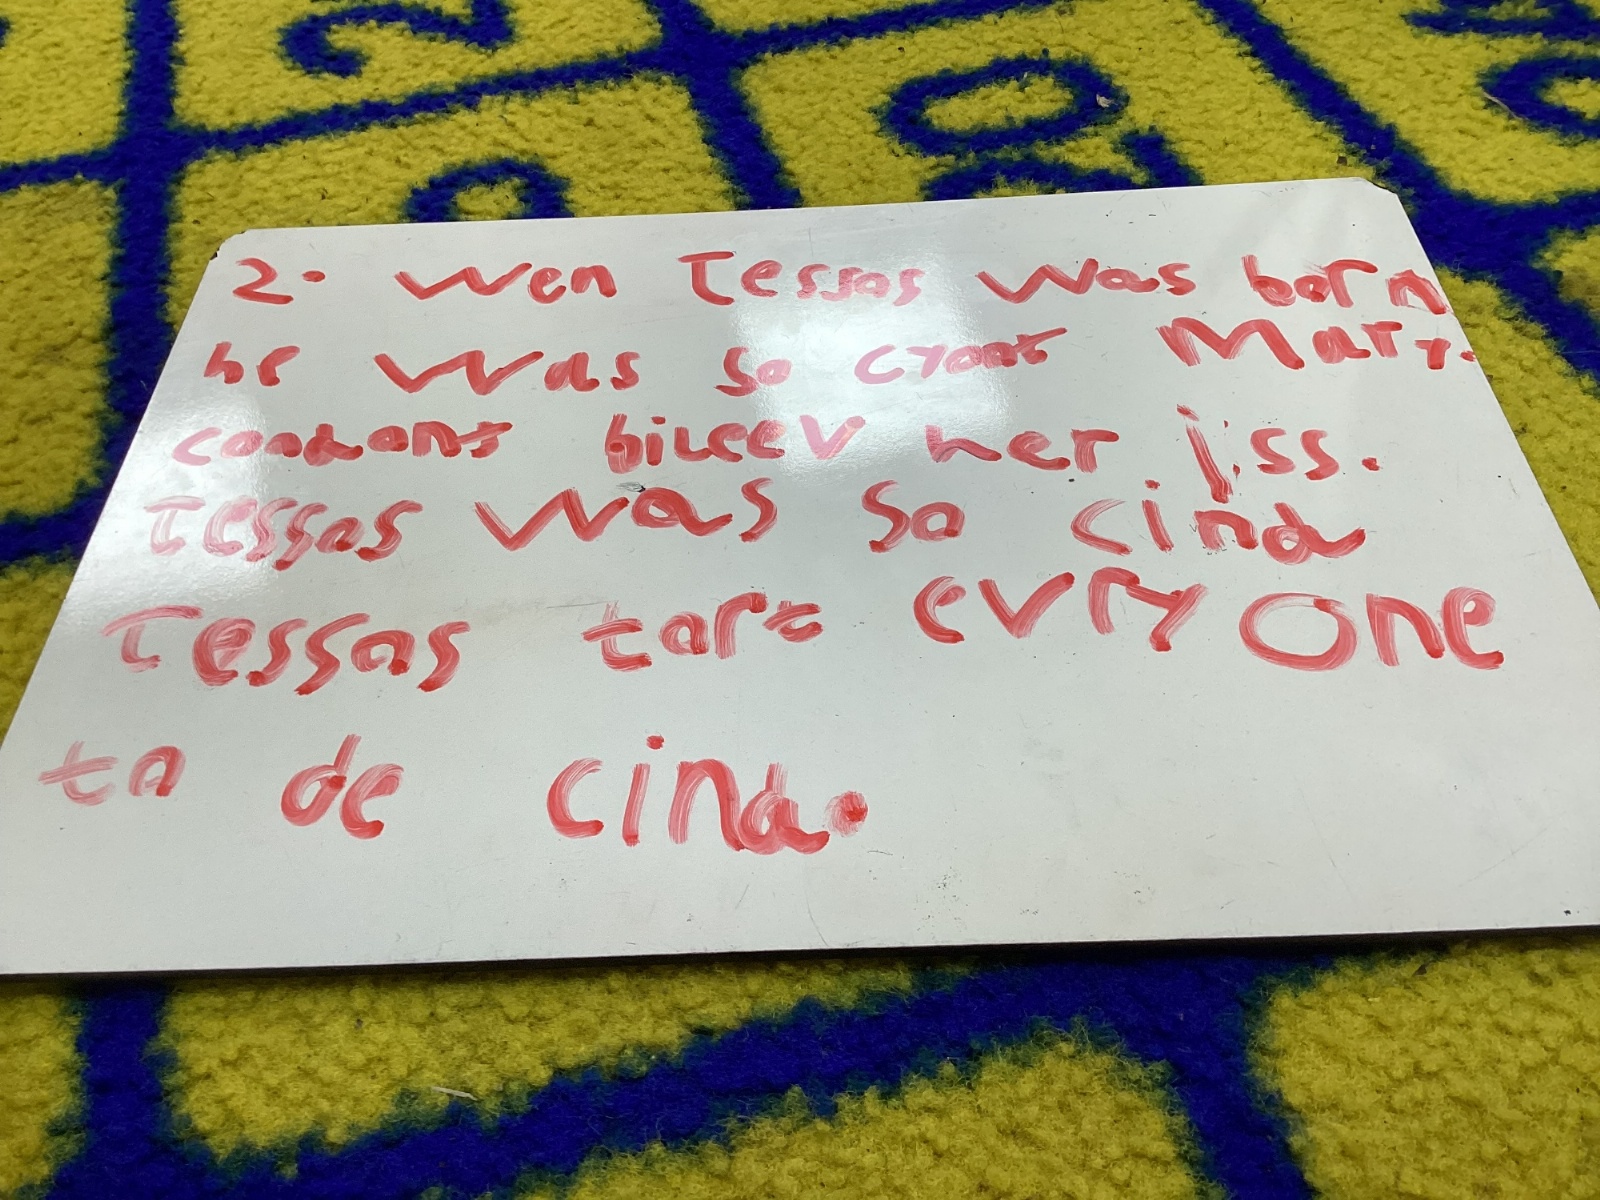 2. Wen Tessas was born
he was so cyoot Mary.
coodont bileev her iss.
Tessas was so cind
Tessas tort evry one
to de cind.